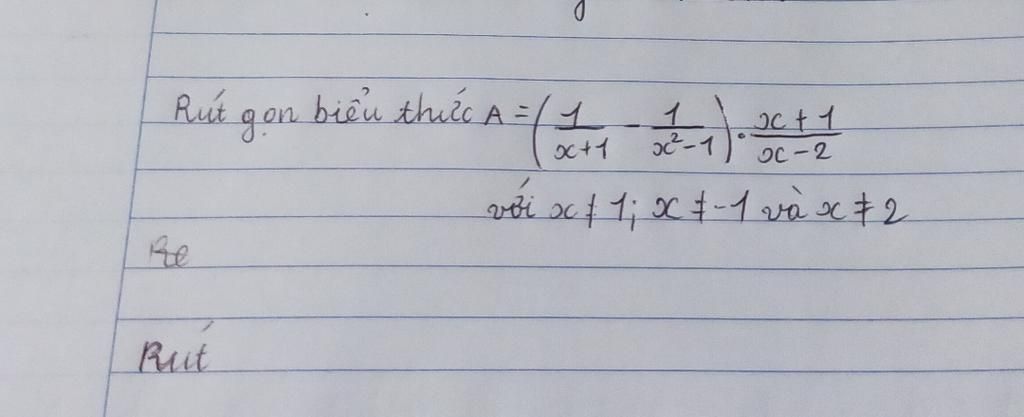 Rút gọn biểu thức A = (1/(x+1) - 1/(x²-1)) · (x+1)/(x-2)
với x ≠ 1; x ≠ -1 và x ≠ 2
Re
Rút